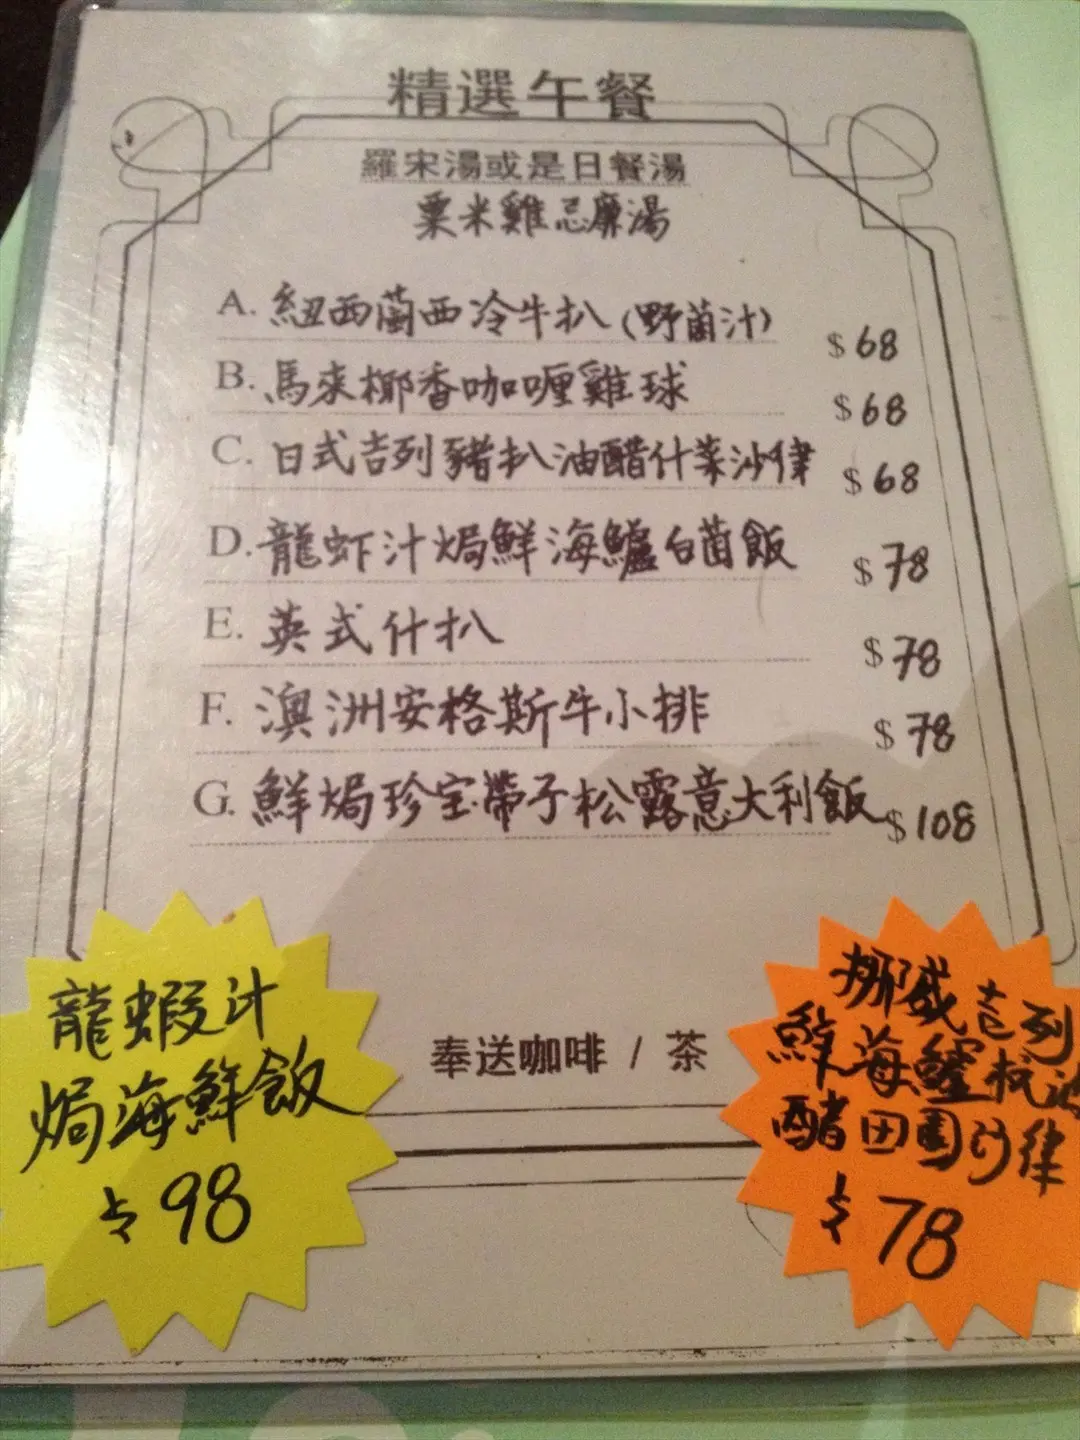 精選午餐
羅宋湯或是日餐湯
粟米雞忌廉湯
A. 紐西蘭西冷牛扒 (野菌汁) $68
B. 馬來椰香咖喱雞球 $68
C. 日式吉列豬扒油醋什菜沙律 $68
D. 龍虾汁焗鮮海鱸白菌飯 $78
E. 英式什扒 $78
F. 澳洲安格斯牛小排 $78
G. 鮮焗珍宝帶子松露意大利飯 $108
龍蝦汁
焗海鮮飯
$98
奉送咖啡 / 茶
挪威吉列
鮮海鱸
醋田園沙律
$78